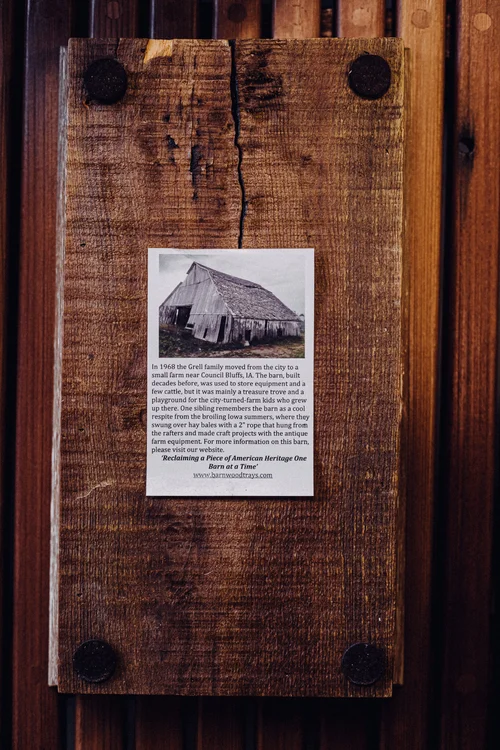 In 1968 the Grell family moved from the city to a
small farm near Council Bluffs, IA. The barn, built
decades before, was used to store equipment and a
few cattle, but it was mainly a treasure trove and a
playground for the city-turned-farm kids who grew
up there. One sibling remembers the barn as a cool
respite from the broiling Iowa summers, where they
swung over hay bales with a 2" rope that hung from
the rafters and made craft projects with the antique
farm equipment. For more information on this barn,
please visit our website.
'Reclaiming a Piece of American Heritage One
Barn at a Time'
www.barnwoodtrays.com